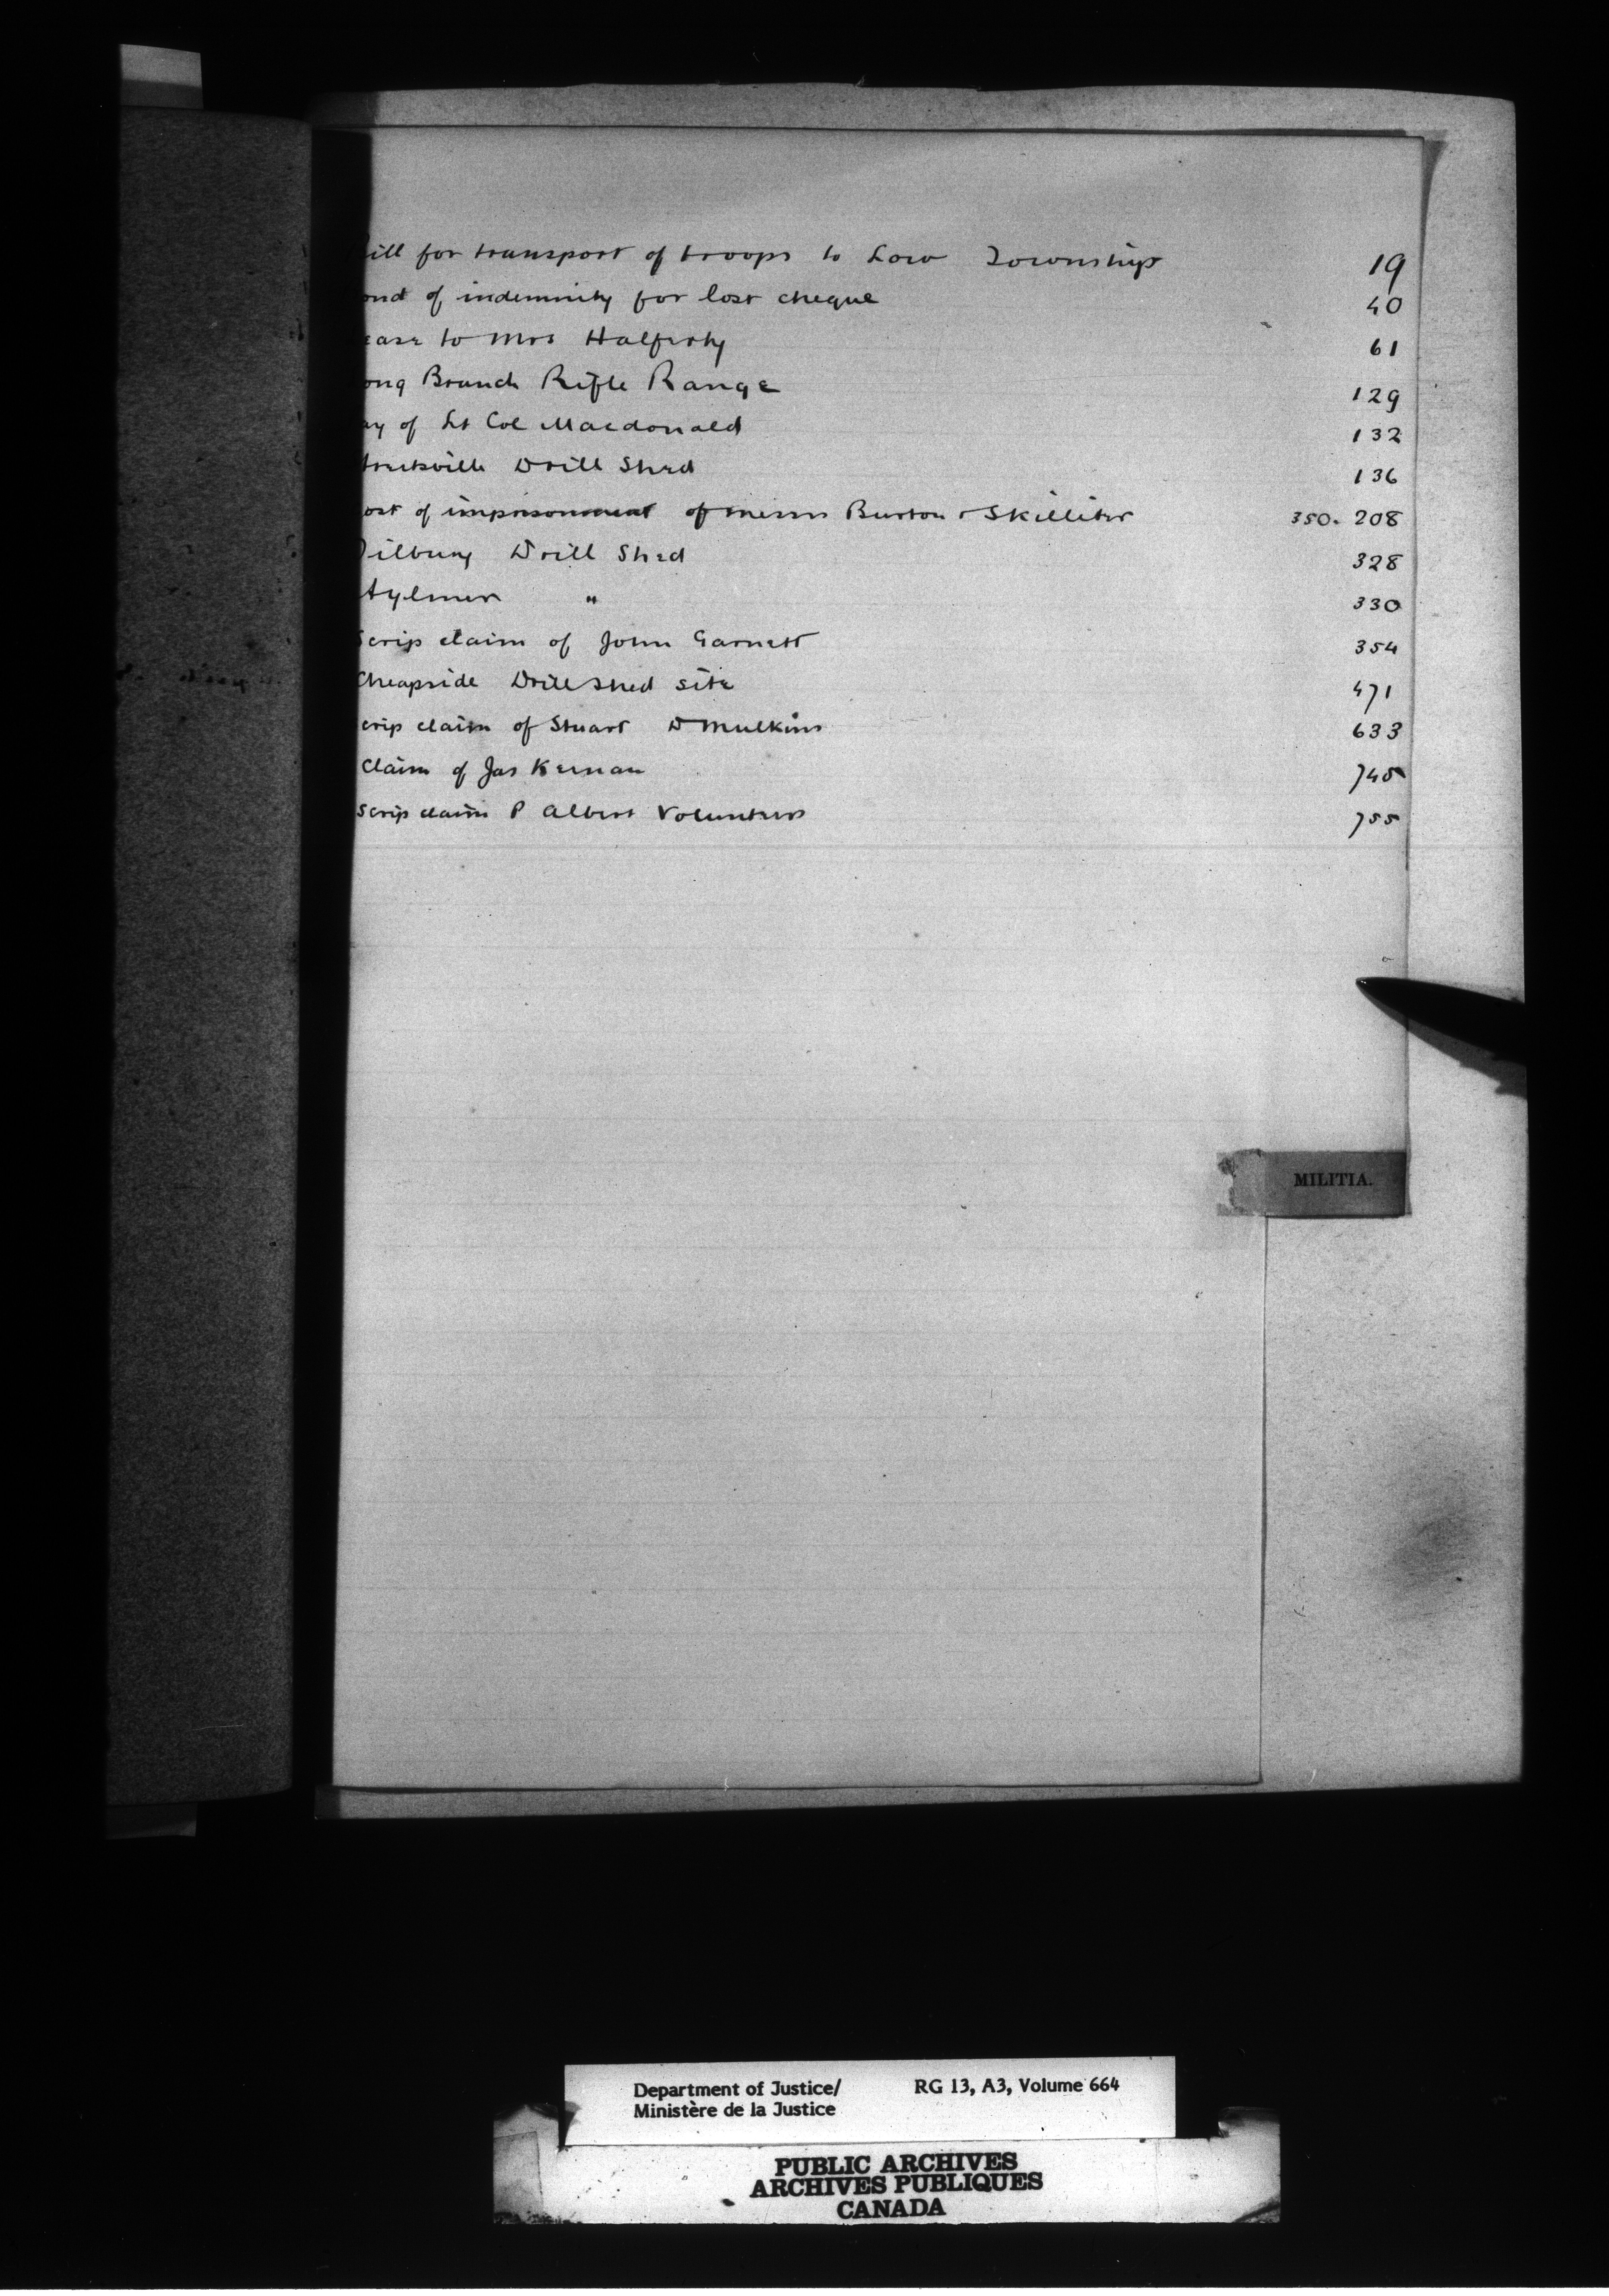 Bill for transport of troops to Low Township 19
ond of indemnity for lost cheque 40
ease to Mrs Halferty 61
ong Branch Rifle Range 129
ay of Lt Col Macdonald 132
Drill Shed 136
ost of imprisonment of Messrs Burton & Skilliter 350. 208
Tilbury Drill Shed 328
Aylmer " 330
Scrip claim of John Garnett 354
Cheapside Drill Shed site 471
crip claim of Stuart D Mulkins 633
Claim of Jas Kernan 745
Scrip claim P Albert Volunteers 755
MILITIA.
Department of Justice/ RG 13, A3, Volume 664
Ministère de la Justice
PUBLIC ARCHIVES
ARCHIVES PUBLIQUES
CANADA